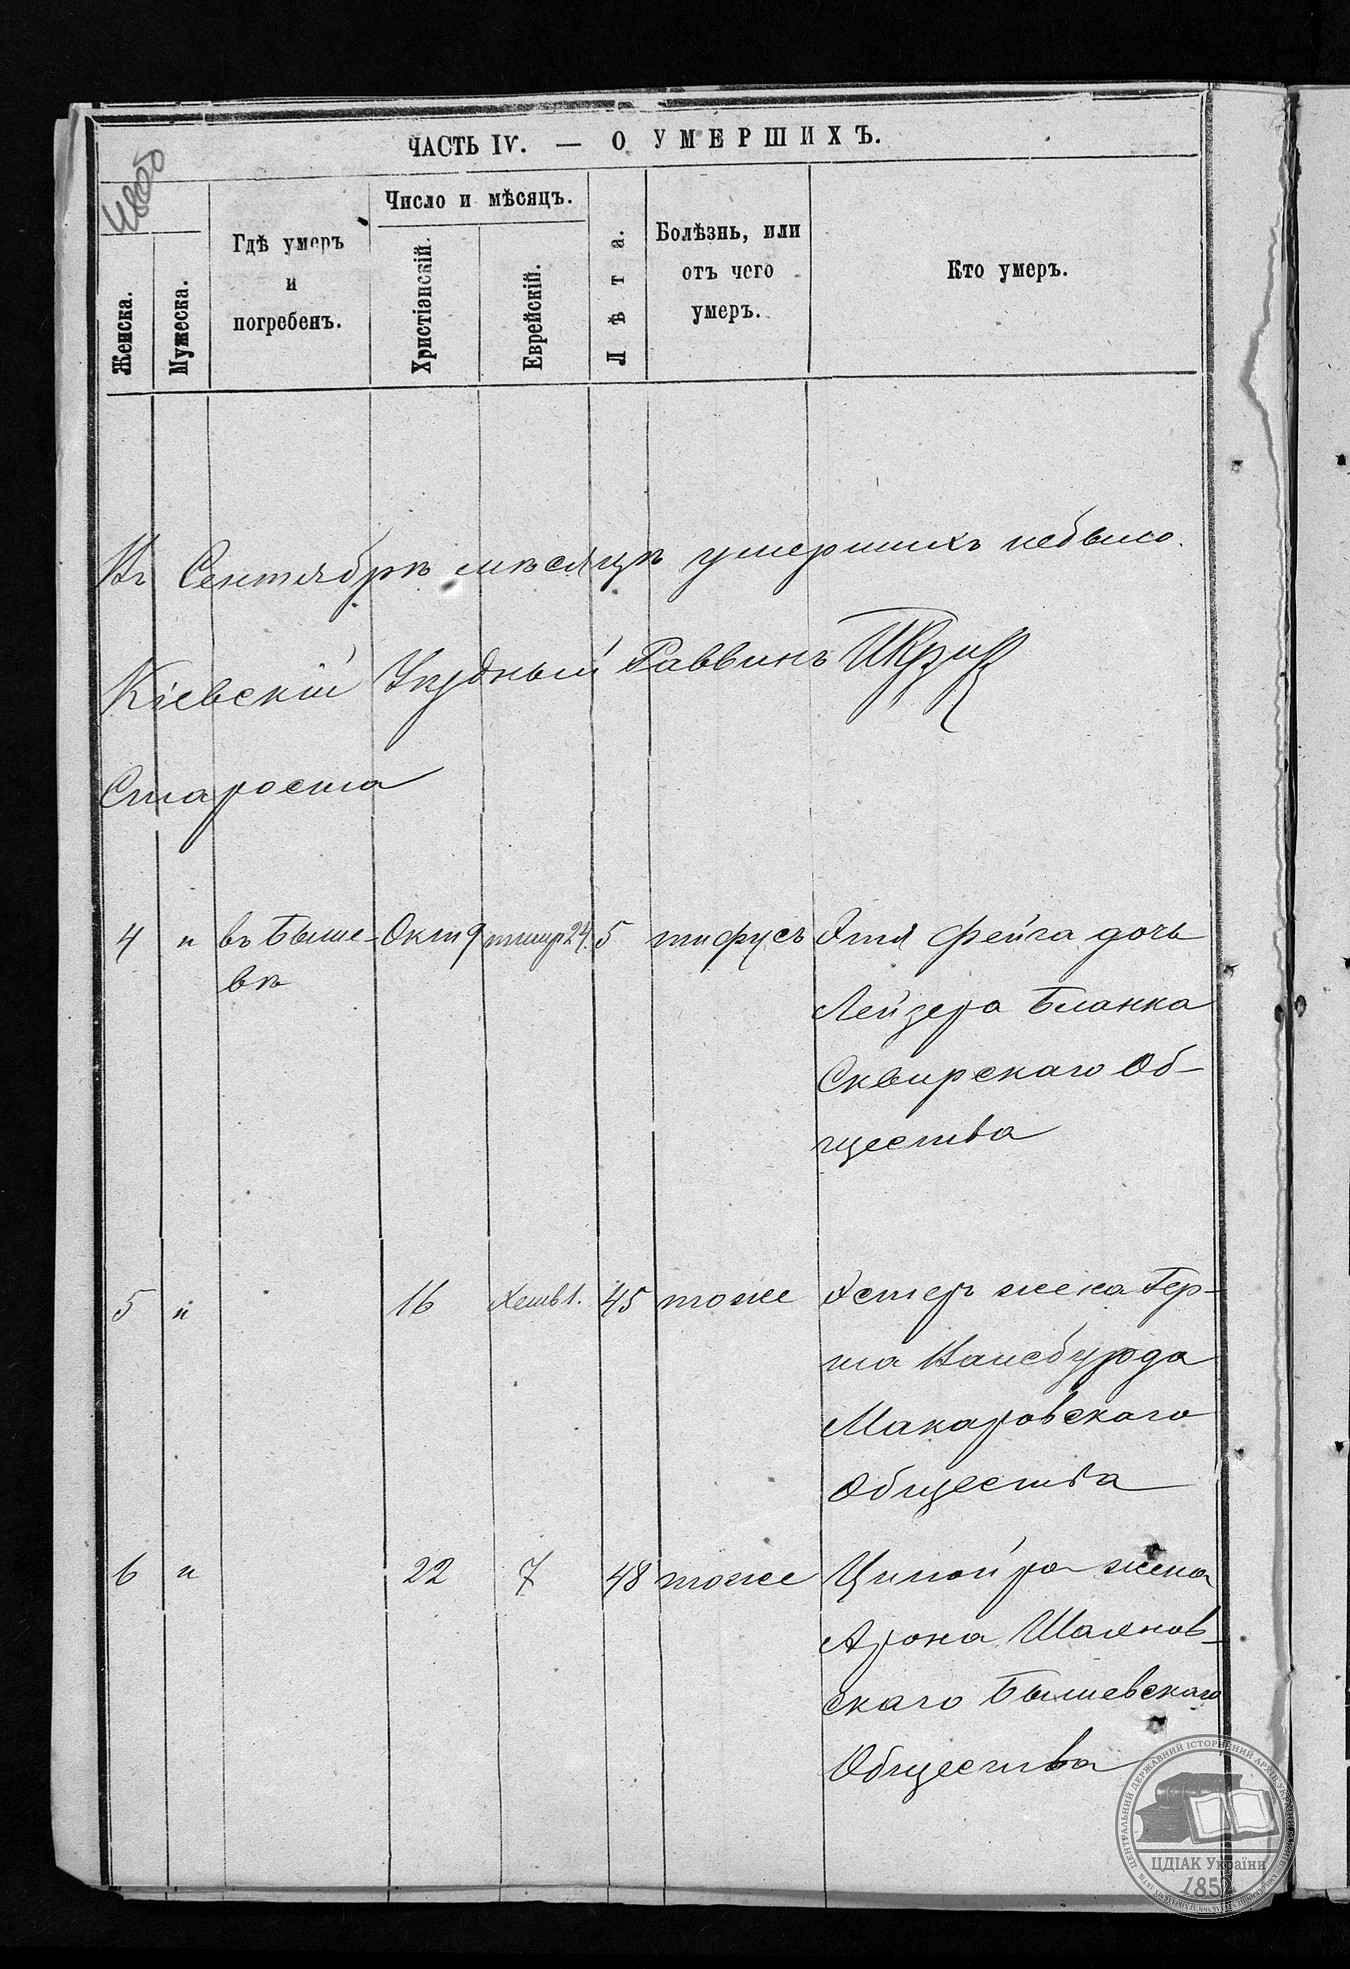 ЧАСТЬ IV. — О УМЕРШИХЪ.
Женска.
Мужеска.
Гдѣ умеръ
и
погребенъ.
Число и мѣсяцъ.
Христіанскій.
Еврейскій.
Лѣта.
Болѣзнь, или
отъ чего
умеръ.
Кто умеръ.
Въ Сентябрѣ мѣсяцѣ умершихъ небыло.
Кіевскій Уѣздный Раввинъ
Староста
4 " въ Быше- Окт 9 тишр 24. 5 тифусъ Этя Фейга дочь
вѣ
Лейзера Бланка
Сквирскаго Об-
щества
5 " 16 Хешв 1. 45 тоже Эстеръ жена Гер-
Макаровскаго
Общества
6 " 22 7 48 тоже Ципойра жена
Арона Шаянов-
скаго Бышевскаго
Общества
ЦЕНТРАЛЬНИЙ ДЕРЖАВНИЙ ІСТОРИЧНИЙ АРХІВ УКРАЇНИ
ЦДІАК України
1852